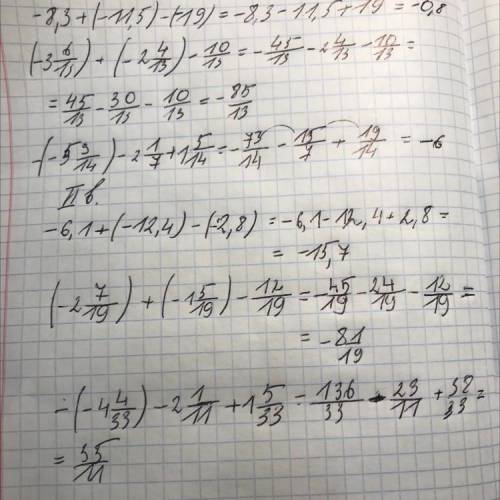 -8,3+(-11,5)-(-19)=-8,3-11,5+19=-0,8
(-3 6/13)+(-2 4/13)-10/13=-45/13-2 4/13-10/13=
=45/13-30/13-10/13=-85/13
-(-5 3/14)-2 1/7+1 5/14=-73/14-15/7+19/14=-6
II в.
-6,1+(-12,4)-(-2,8)=-6,1-12,4+2,8=
=-15,7
(-2 7/19)+(-1 5/19)-12/19=-45/19-24/19-12/19=
=-81/19
-(-4 4/33)-2 1/11+1 5/33=136/33-23/11+38/33=
=35/11